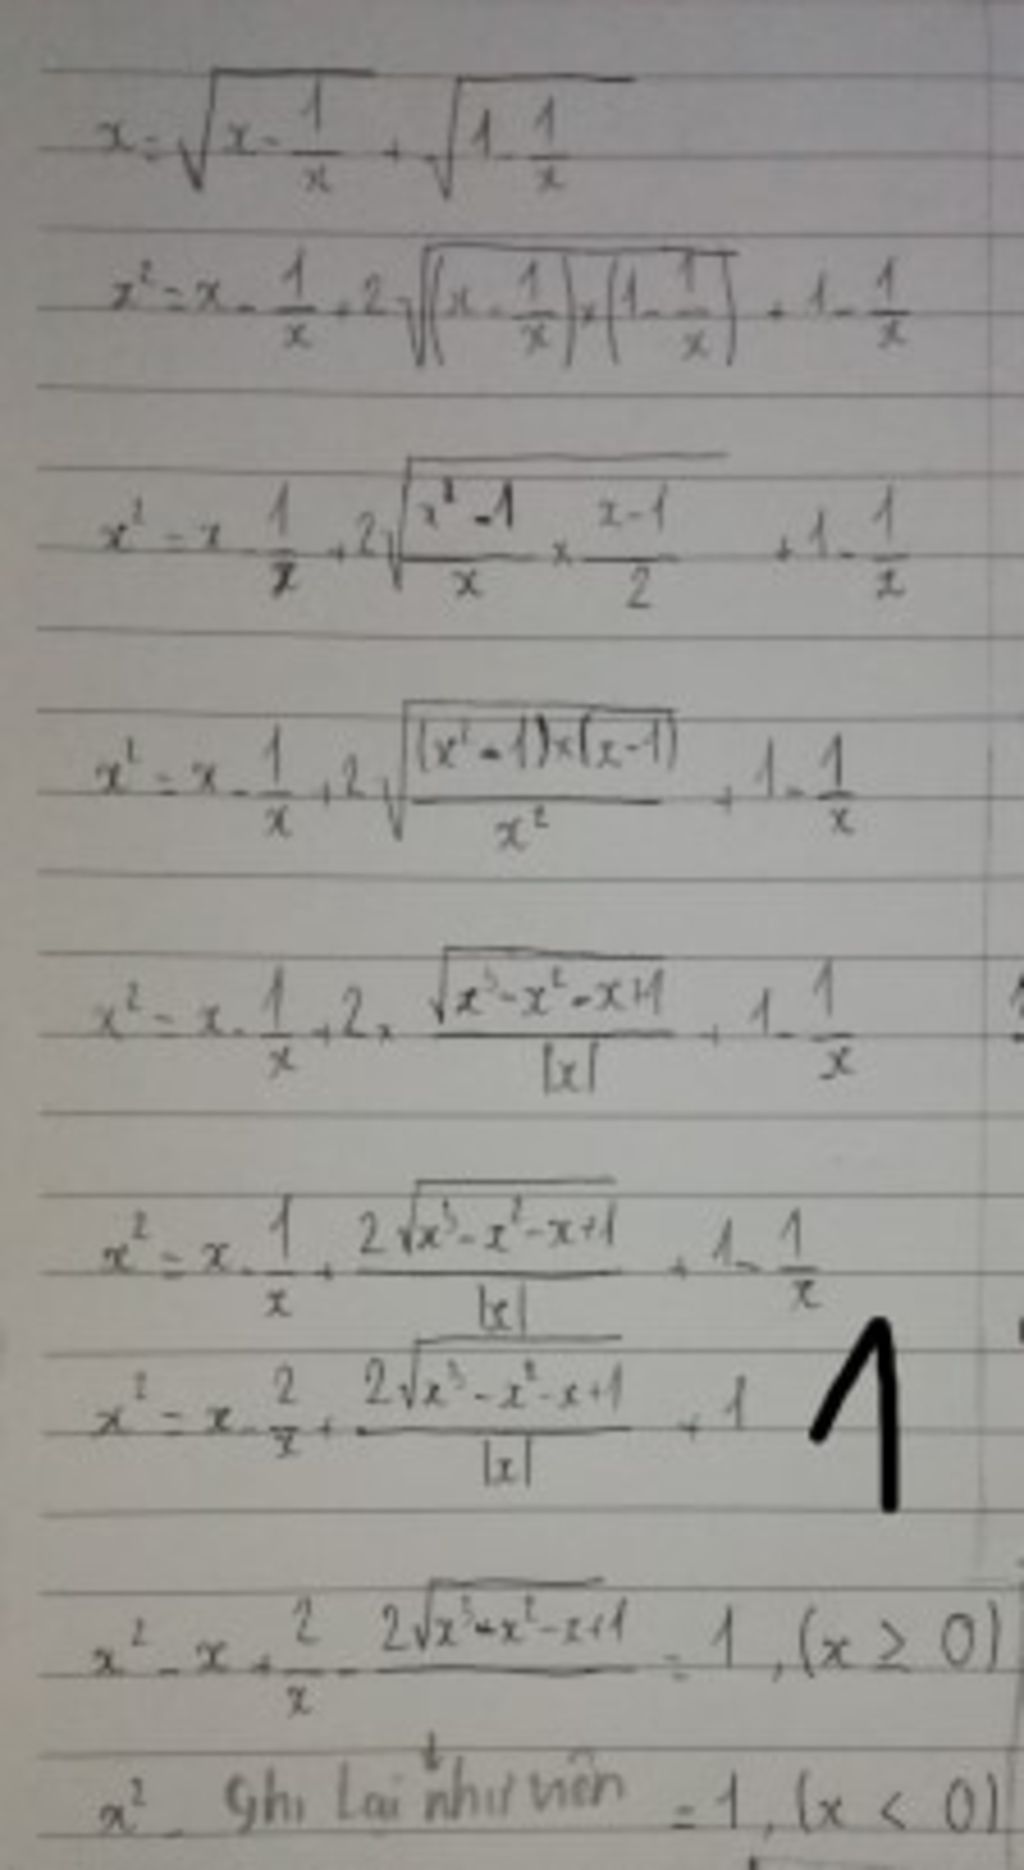 x = √(x - 1/x) + √(1 - 1/x)
x² = x - 1/x + 2√((x - 1/x) × (1 - 1/x)) + 1 - 1/x
x² = x - 1/x + 2√((x² - 1)/x × (x - 1)/2) + 1 - 1/x
x² = x - 1/x + 2√((x² - 1) × (x - 1)/x²) + 1 - 1/x
x² = x - 1/x + 2 × √(x³ - x² - x + 1)/|x| + 1 - 1/x
x² = x - 1/x + 2√(x³ - x² - x + 1)/|x| + 1 - 1/x
x² = x - 2/x + 2√(x³ - x² - x + 1)/|x| + 1
1
x² - x + 2/x - 2√(x³ - x² - x + 1) = 1, (x ≥ 0)
x² - Ghi lại như = 1, (x < 0)